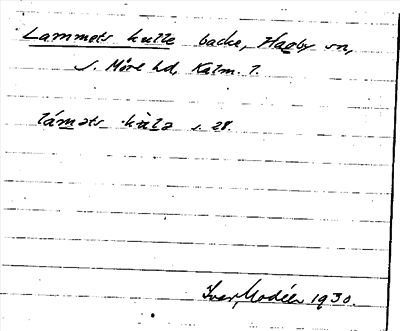 Lammets kulle backe, Hagby sn,
S. Möre hd, Kalm. l.
lámǝts kùlǝ s. 28.
Ivar Modéer 1930.